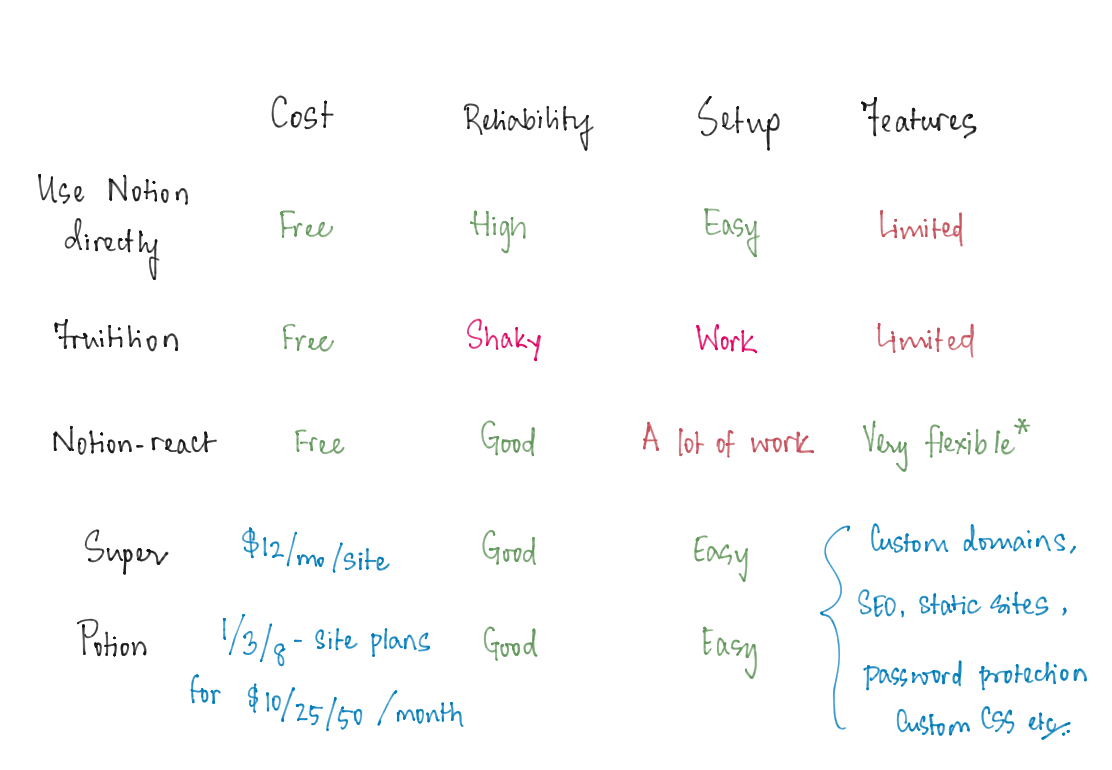 Cost Reliability Setup Features
Use Notion
directly Free High Easy Limited
Fruitition Free Shaky Work Limited
Notion-react Free Good A lot of work Very flexible*
Super $12/mo/site Good Easy Custom domains,
SEO, static sites,
Potion 1/3/8-site plans Good Easy
for $10/25/50/month
password protection
Custom CSS etc.